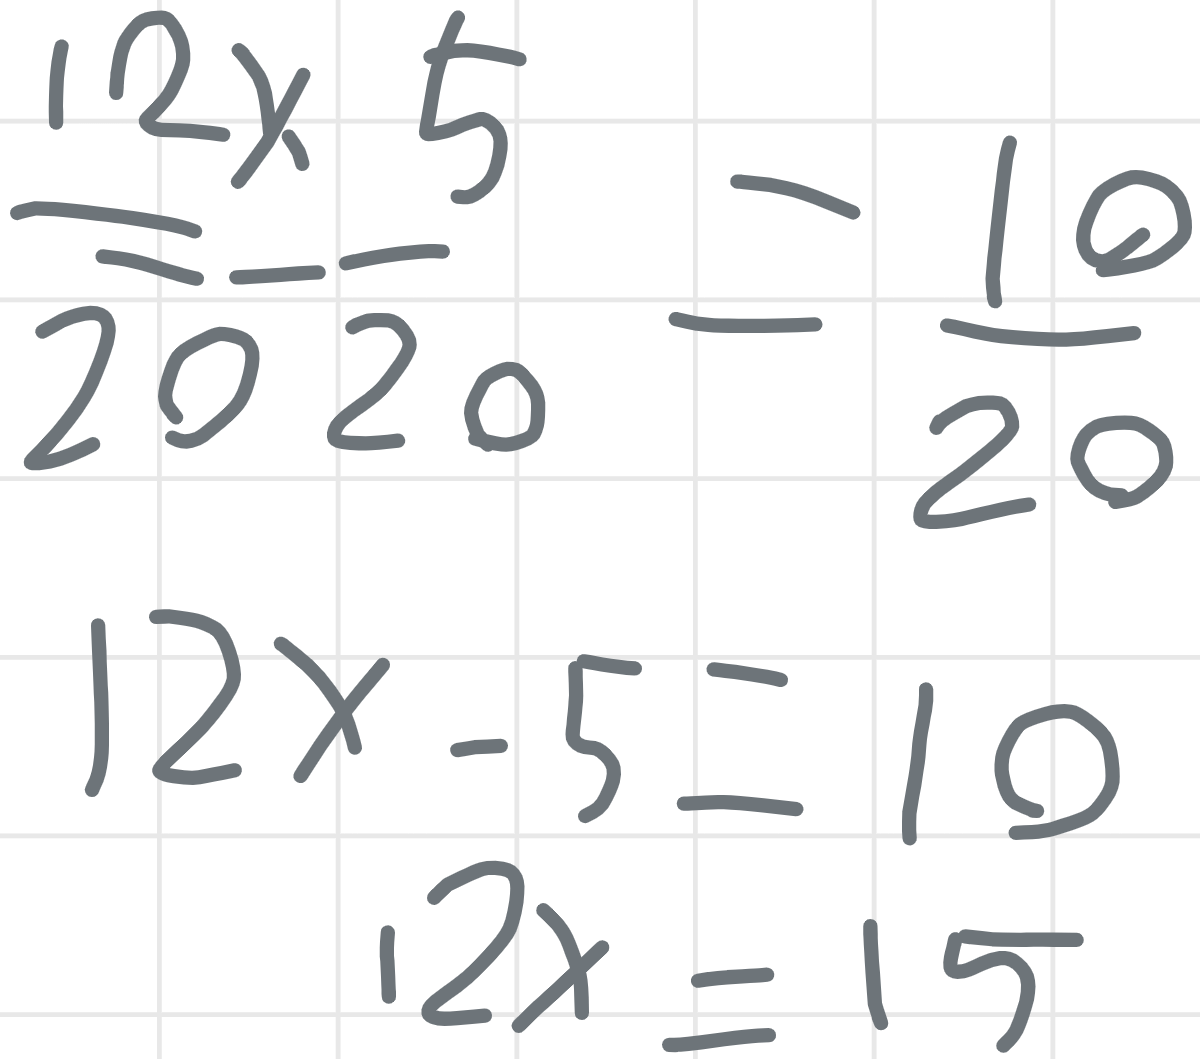 12x/20 - 5/20 = 10/20
12x - 5 = 10
12x = 15